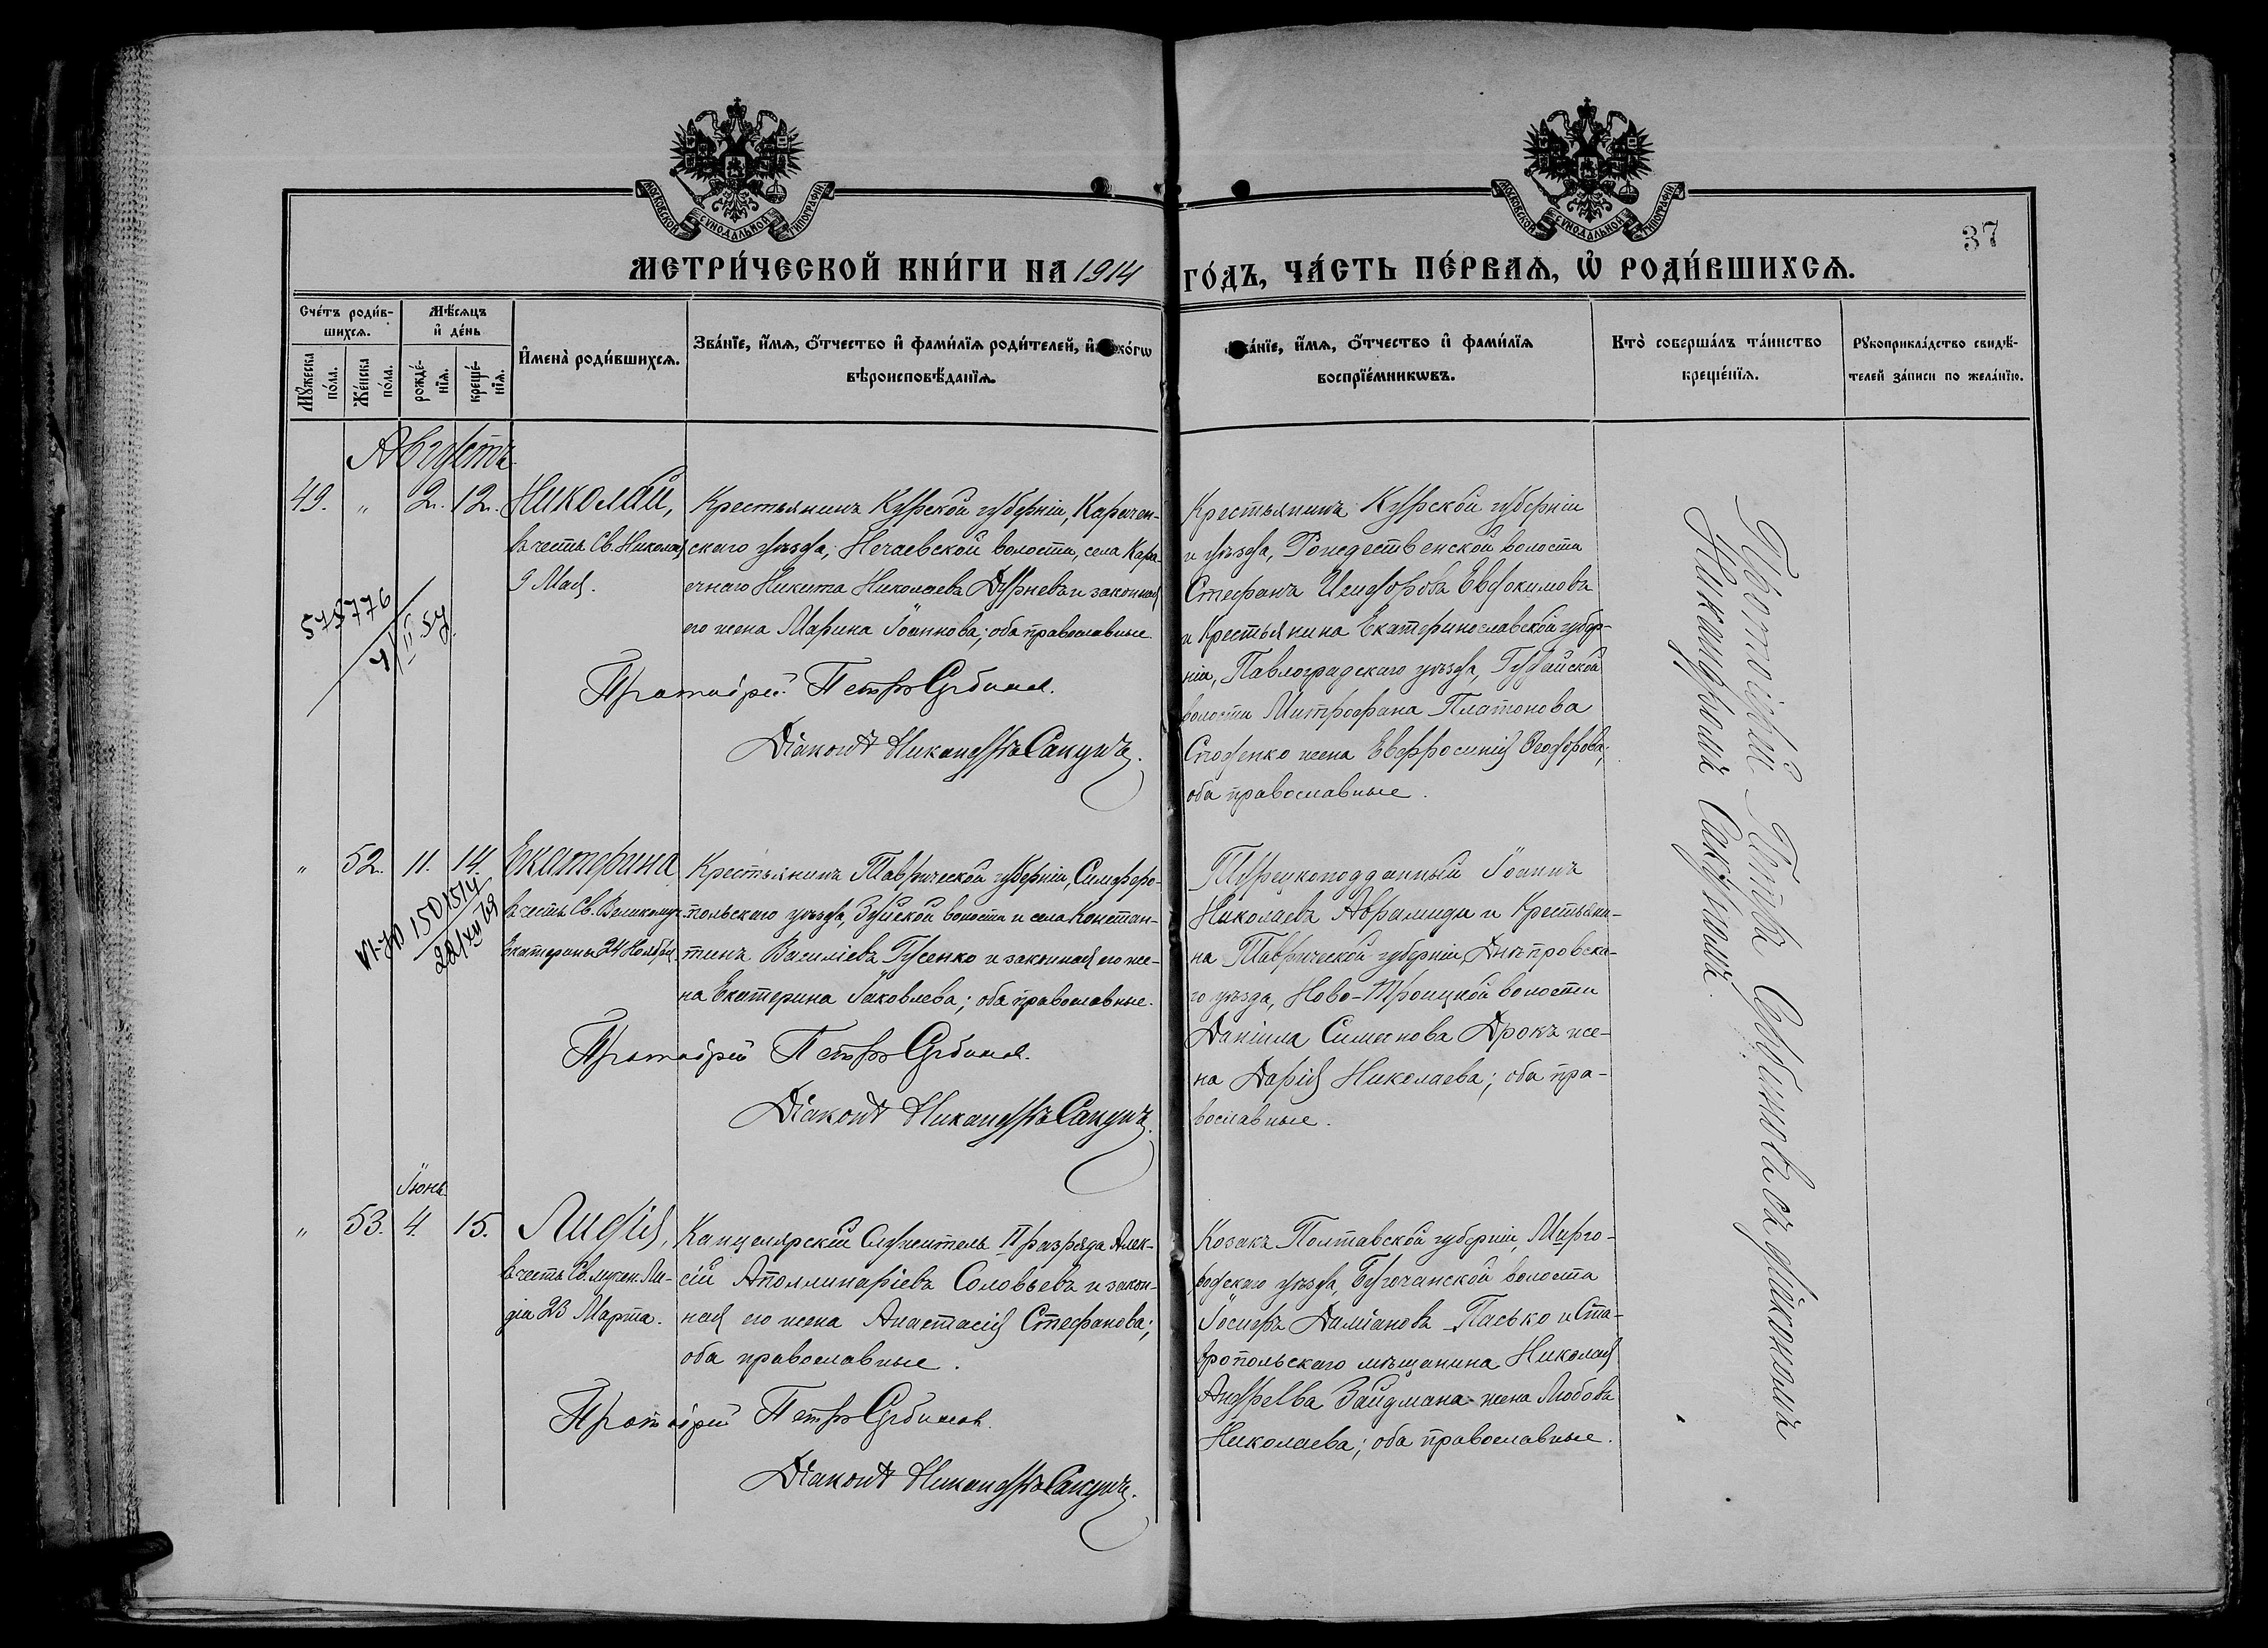 МОСКОВСКОЙ СѴНОДАЛЬНОЙ ТИПОГРАФІИ
МОСКОВСКОЙ СѴНОДАЛЬНОЙ ТИПОГРАФІИ
37
МЕТРИ́ЧЕСКОЙ КНИ́ГИ НА 1914 ГО́ДЪ, ЧА́СТЬ ПЕ́РВАѦ, Ѡ҆ РОДИ́ВШИХСѦ.
Сче́тъ роди́в-
шихсѧ.
Мꙋ́жеска по́ла.
Же́нска по́ла.
Мѣ́сѧцъ
и҆ де́нь
рожде́-
нїѧ.
креще́-
нїѧ.
И҆мена̀ роди́вшихсѧ.
Зва́нїе, и҆́мѧ, ѻ҆́тчество и҆ фами́лїѧ роди́телей, и҆ ко́гѡ
вѣроисповѣ́данїѧ.
ва́нїе, и҆́мѧ, ѻ҆́тчество и҆ фами́лїѧ
воспрїе́мникѡвъ.
Кто̀ соверша́лъ та́инство
креще́нїѧ.
Рꙋкоприкла́дство свидѣ́-
телей за́писи по жела́нїю.
Августъ
49. " 2. 12. Николай,
въ честь Св. Николая
9 Мая.
Крестьянинъ Курской губерніи,
скаго уѣзда, Нечаевской волости, села Кара-
ечнаго Никита Николаевъ Дурневъ и законная
его жена Марина Іоаннова; оба православные
Протоіерей Петръ Сербиновъ.
Діаконъ Никандръ Сакунъ.
Крестьянинъ Курской губерніи
и уѣзда, Рождественской волости
Стефанъ Исидоровъ Евдокимовъ
и Крестьянина Екатеринославской губер-
ніи, Павлоградскаго уѣзда,
волости Митрофана Платонова
жена Евфросинія Ѳеодорова;
оба православные.
575776
4/II.57
" 52. 11. 14. Екатерина
въ честь Св. Великомуч.
Екатерины 24 Ноября.
Крестьянинъ Таврической губерніи, Симферо-
польскаго уѣзда, Зуйской волости и села Констан-
тинъ Василіевъ Гусенко и законная его же-
на Екатерина Іаковлева; оба православные.
Протоіерей Петръ Сербиновъ.
Діаконъ Никандръ Сакунъ.
Турецкоподданный Іоаннъ
Николаевъ Аврамиди и Крестьяни-
на Таврической губерніи, Днѣпровска-
го уѣзда, Ново-Троицкой волости
Даніила Симеонова Дрокъ же-
на Дарія Николаева; оба пра-
вославные.
150/514
22/XII 69
Іюнь
" 53. 4. 15. Лидія,
въ честь Св. мучен. Ли-
діи 23 Марта.
Канцелярскій Служитель II разряда Алек-
сій Аполлинаріевъ Соловьевъ и закон-
ная его жена Анастасія Стефанова;
оба православные.
Протоіерей Петръ Сербиновъ.
Діаконъ Никандръ Сакунъ.
Козакъ Полтавской губерніи, Мирго-
родскаго уѣзда, волости
Іосифъ Даміановъ Пасько и Ста-
вропольскаго мѣщанина Николая
Андреева Зайдмана жена Любовь
Николаева; оба православные.
Протоіерей Петръ Сербиновъ съ діакономъ
Никандромъ Сакуномъ.